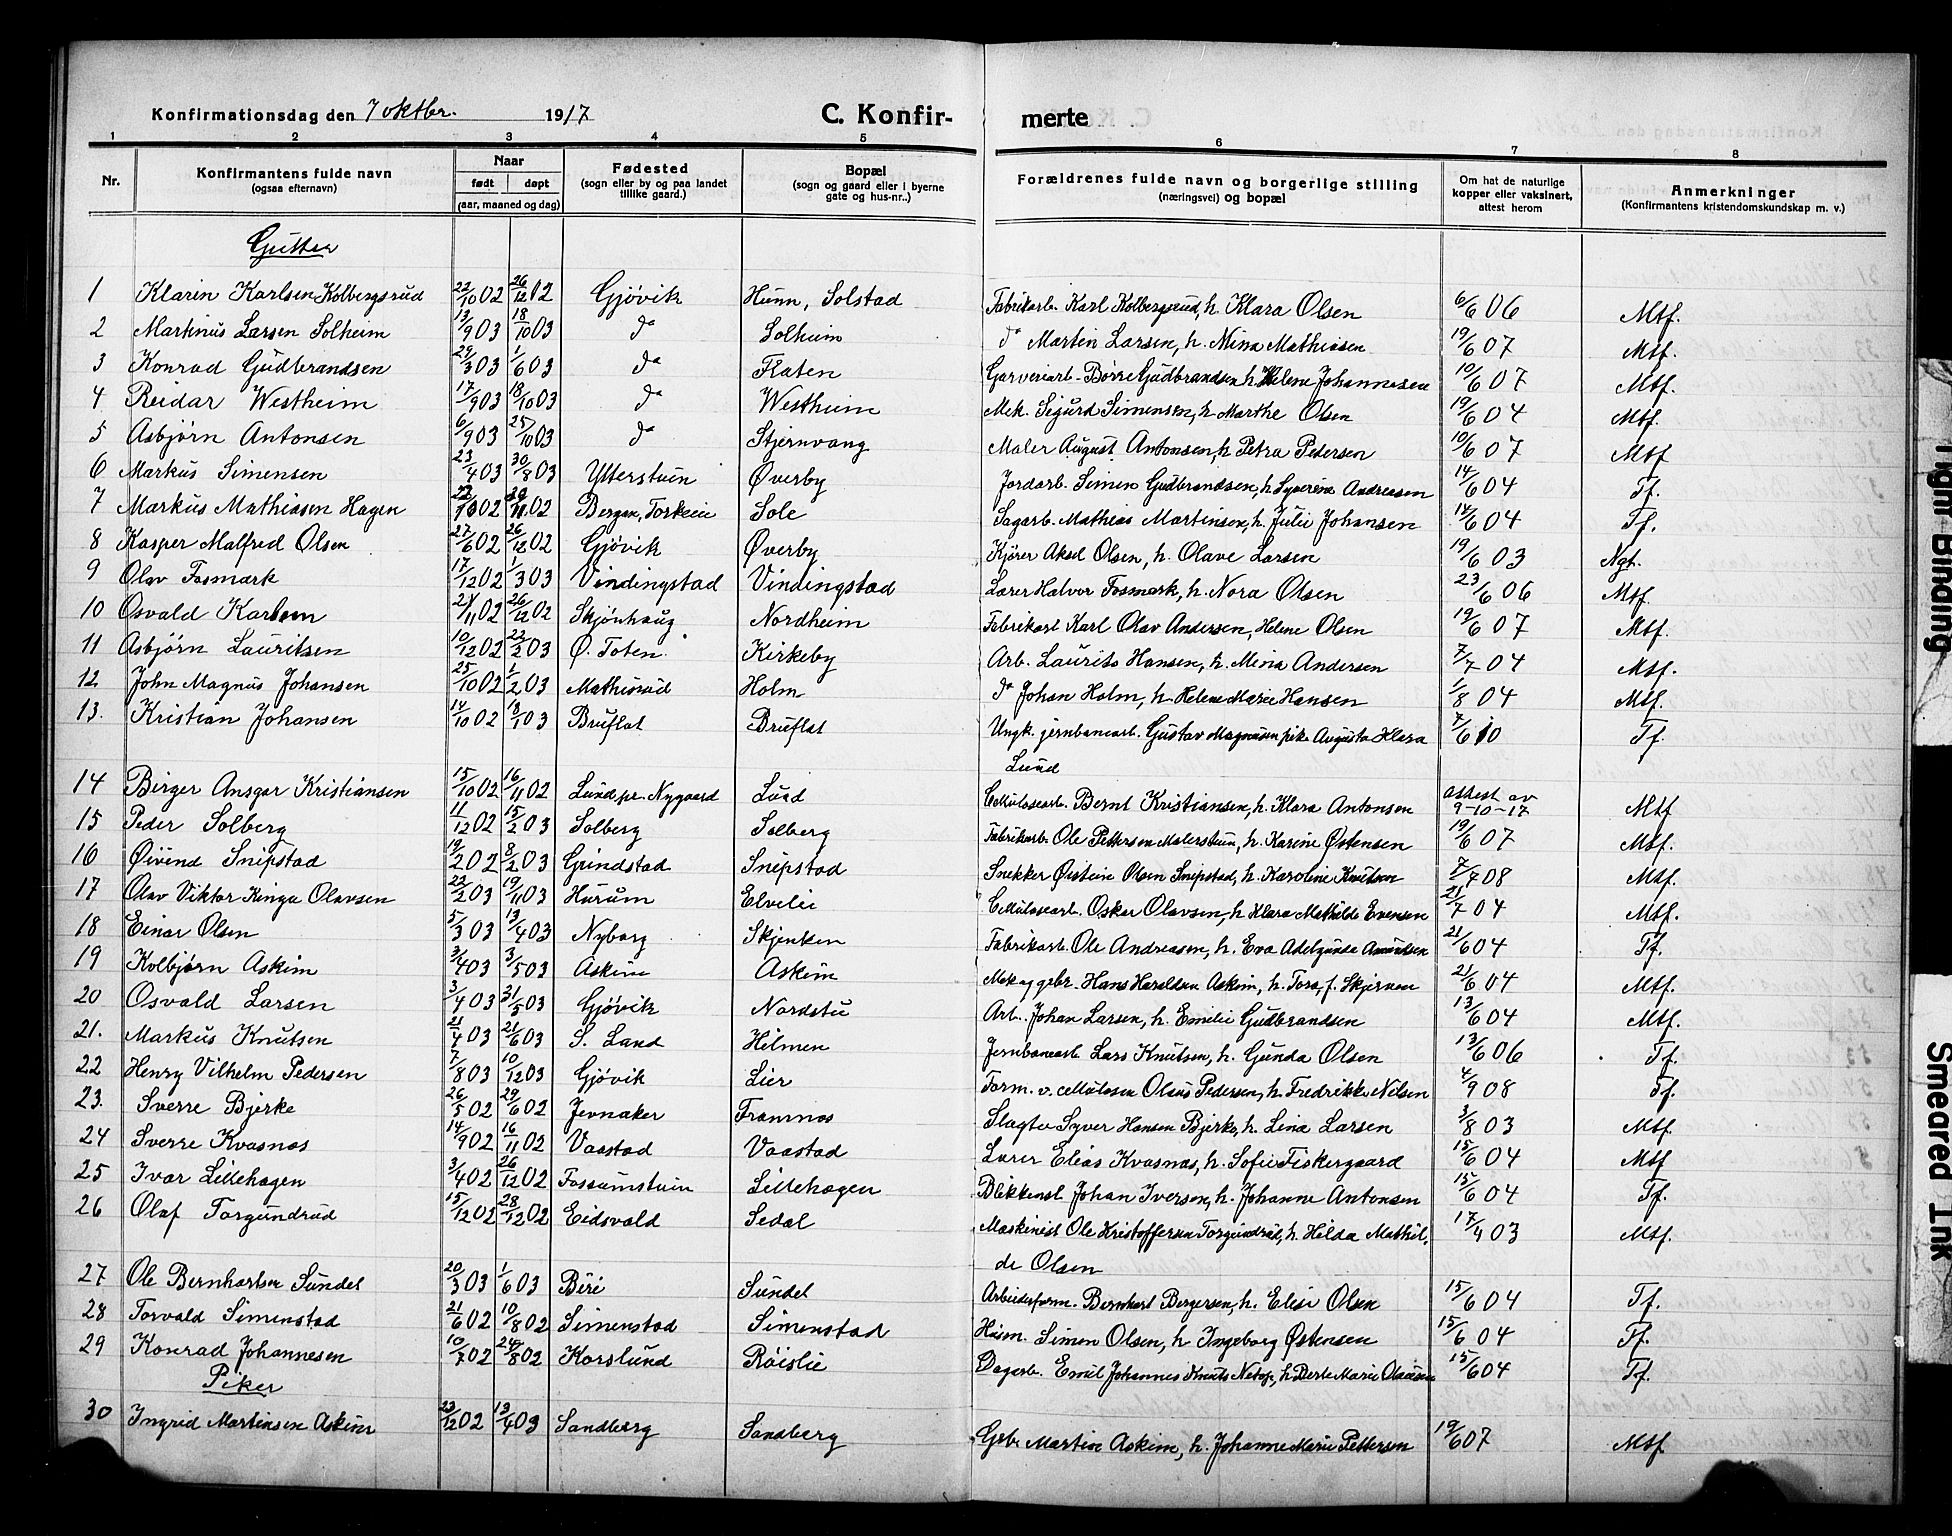 Konfirmationsdag den 7 oktbr. 1917 C. Konfir- merte
1 2 3 4 5 6 7 8
Nr. Konfirmantens fulde navn (ogsaa efternavn) Naar født døpt (aar, maaned og dag) Fødested (sogn eller by og paa landet tillike gaard.) Bopæl (sogn og gaard eller i byerne gate og hus-nr..) Forældrenes fulde navn og borgerlige stilling (næringsvei) og bopæl Om hat de naturlige kopper eller vaksinert, attest herom Anmerkninger (Konfirmantens kristendomskundskap m. v.)
Gutter
1 Klarin Karlsen Kolbergsrud 22/10 02 26/12 02 Gjøvik Hunn, Solstad Fabrikarb. Karl Kolbergsrud, h. Klara Olsen 6/6 06 Mtf.
2 Martinus Larsen Solheim 13/9 03 18/10 03 do Solheim do Martin Larsen, h. Nina Mathiasen 19/6 07 Mtf.
3 Konrad Gudbrandsen 29/3 03 1/6 03 do Flaten Garveriarb. Børre Gudbrandsen h. Helene Johannesen 10/6 07 Mtf.
4 Reidar Westheim 17/9 03 18/10 03 do Westheim Mek. Sigurd Simensen, h. Marthe Olsen 19/6 04 Mtf.
5 Asbjørn Antonsen 6/9 03 25/10 03 do Stjernvang Maler August Antonsen, h. Petra Petersen 10/6 07 Mtf
6 Markus Simensen 23/4 03 30/8 03 Ytterstuen Øverby Jordarb. Simen Gudbrandsen, h. Syverine Andreasen 14/6 04 Tf.
7 Markus Mathiasen Hagen 22/10 02 29/11 02 Bergen, Torkeie Sole Sagarb. Mathias Martinsen, h. Julie Johansen 14/6 04 Tf.
8 Kasper Malfred Olsen 27/6 02 26/12 02 Gjøvik Øverby Kjører Aksel Olsen, h. Olave Larsen 19/6 03 Ngt.
9 Olav Fosmark 17/12 02 1/3 03 Vindingstad Vindingstad Lærer Halvor Fosmark, h. Nora Olsen 23/6 06 Mtf.
10 Osvald Karlsen 21/11 02 26/12 02 Skjønhaug Nordheim Fabrikarb Karl Olav Andersen, Helene Olsen 19/6 07 Mtf.
11 Asbjørn Lauritsen 10/12 02 22/2 03 Ø. Toten Kirkeby Arb. Laurits Hansen, h. Mina Andersen 7/7 04 Mtf.
12 John Magnus Johansen 25/10 02 1/2 03 Mathisrud Holm do Johan Holm, h. Helene Marie Hansen 1/8 04 Mtf.
13. Kristian Johansen 14/10 02 18/1 03 Bruflat Bruflat Ungk. jernbanearb. Gustav Magnusen pike Augusta Klara 7/6 10 Tf.
Lund
14 Birger Ansgar Kristiansen 15/10 02 16/11 02 Lund pr. Nygaard Lund Cellulosearb. Bernt Kristiansen, h. Klara Antonsen attest av 9-10-17 Mtf
15 Peder Solberg 11/12 02 15/2 03 Solberg Solberg Fabrikarb. Ole Pettersen Malerstuen, h. Karine Østensen 19/6 07 Mtf.
16 Øivind Snipstad 19/2 02 8/2 03 Grindstad Snipstad Snekker Øistein Olsen Snipstad, h. Karoline Knutsen 7/7 08 Mtf.
17 Olav Viktor Kinga Olavsen 22/2 03 19/11 03 Hurum Elvelie Cellulosearb. Oskar Olavsen, h. Klara Mathilde Evensen 21/7 04 Mtf.
18 Einar Olsen 5/3 03 13/4 03 Nyborg Skjenken Fabrikarb. Ole Andreasen, h. Eva Adelgunda Amundsen 21/6 04 Tf.
19 Kolbjørn Askim 3/4 03 3/5 03 Askim Askim Mek og gebr. Hans Haraldsen Askim, h. Tora, f. Skjerven 21/6 04 Mtf.
20 Osvald Larsen 3/4 03 31/5 03 Gjøvik Nordstu Arb. Johan Larsen, h. Emelie Gudbrandsen 13/6 04 Mtf.
21. Markus Knutsen 21/4 03 21/6 03 S. Land Hilmen Jernbanearb Lars Knutsen, h. Gunda Olsen 13/6 06 Tf.
22 Henry Vilhelm Pedersen 7/8 03 10/12 03 Gjøvik Lier Form. v. cellulosen Olaus Pedersen, h. Fredrikke Nilsen 4/9 08 Tf.
23. Sverre Bjerke 26/5 02 29/6 02 Jevnaker Framnes Slagter Syver Hansen Bjerke, h. Lina Larsen 3/8 03 Mtf.
24 Sverre Kvasnas 14/9 02 16/11 02 Vaastad Vaastad Lærer Elias Kvasnas, h. Sofie Fiskergaard 15/6 04 Mtf
25 Ivar Lillehagen 3/4 02 26/12 02 Fossumstuen Lillehagen Blikkensl. Johan Iversen, h. Johanne Antonsen 15/6 04 Tf.
26 Olaf Torgundrud 15/12 02 28/12 02 Eidsvald Sedal Maskinist Ole Kristoffersen Torgundrud, h. Hilda Mathil, 17/4 03 Mtf.
de Olsen
27 Ole Bernhartsen Sundet 20/3 03 1/6 03 Biri Sundet Arbeidsform. Bernhart Bergersen, h. Elise Olsen 15/6 04 Tf.
28 Torvald Simenstad 21/6 02 10/8 02 Simenstad Simenstad Husm. Simen Olsen, h Ingeborg Østensen 15/6 04 Tf.
29 Konrad Johannesen 10/7 02 24/8 02 Korslund Røislie Dagarb. Emil Johannes Knuts Netop, h. Berte Marie Olausen 15/6 04 Tf.
Piker
30 Ingrid Martinsen Askim 23/12 02 13/4 03 Sandberg Sandberg Gebr Martin Askim, h. Johanne Marie Pettersen 19/6 07 Mtf.
Tight Binding
Smeared Ink